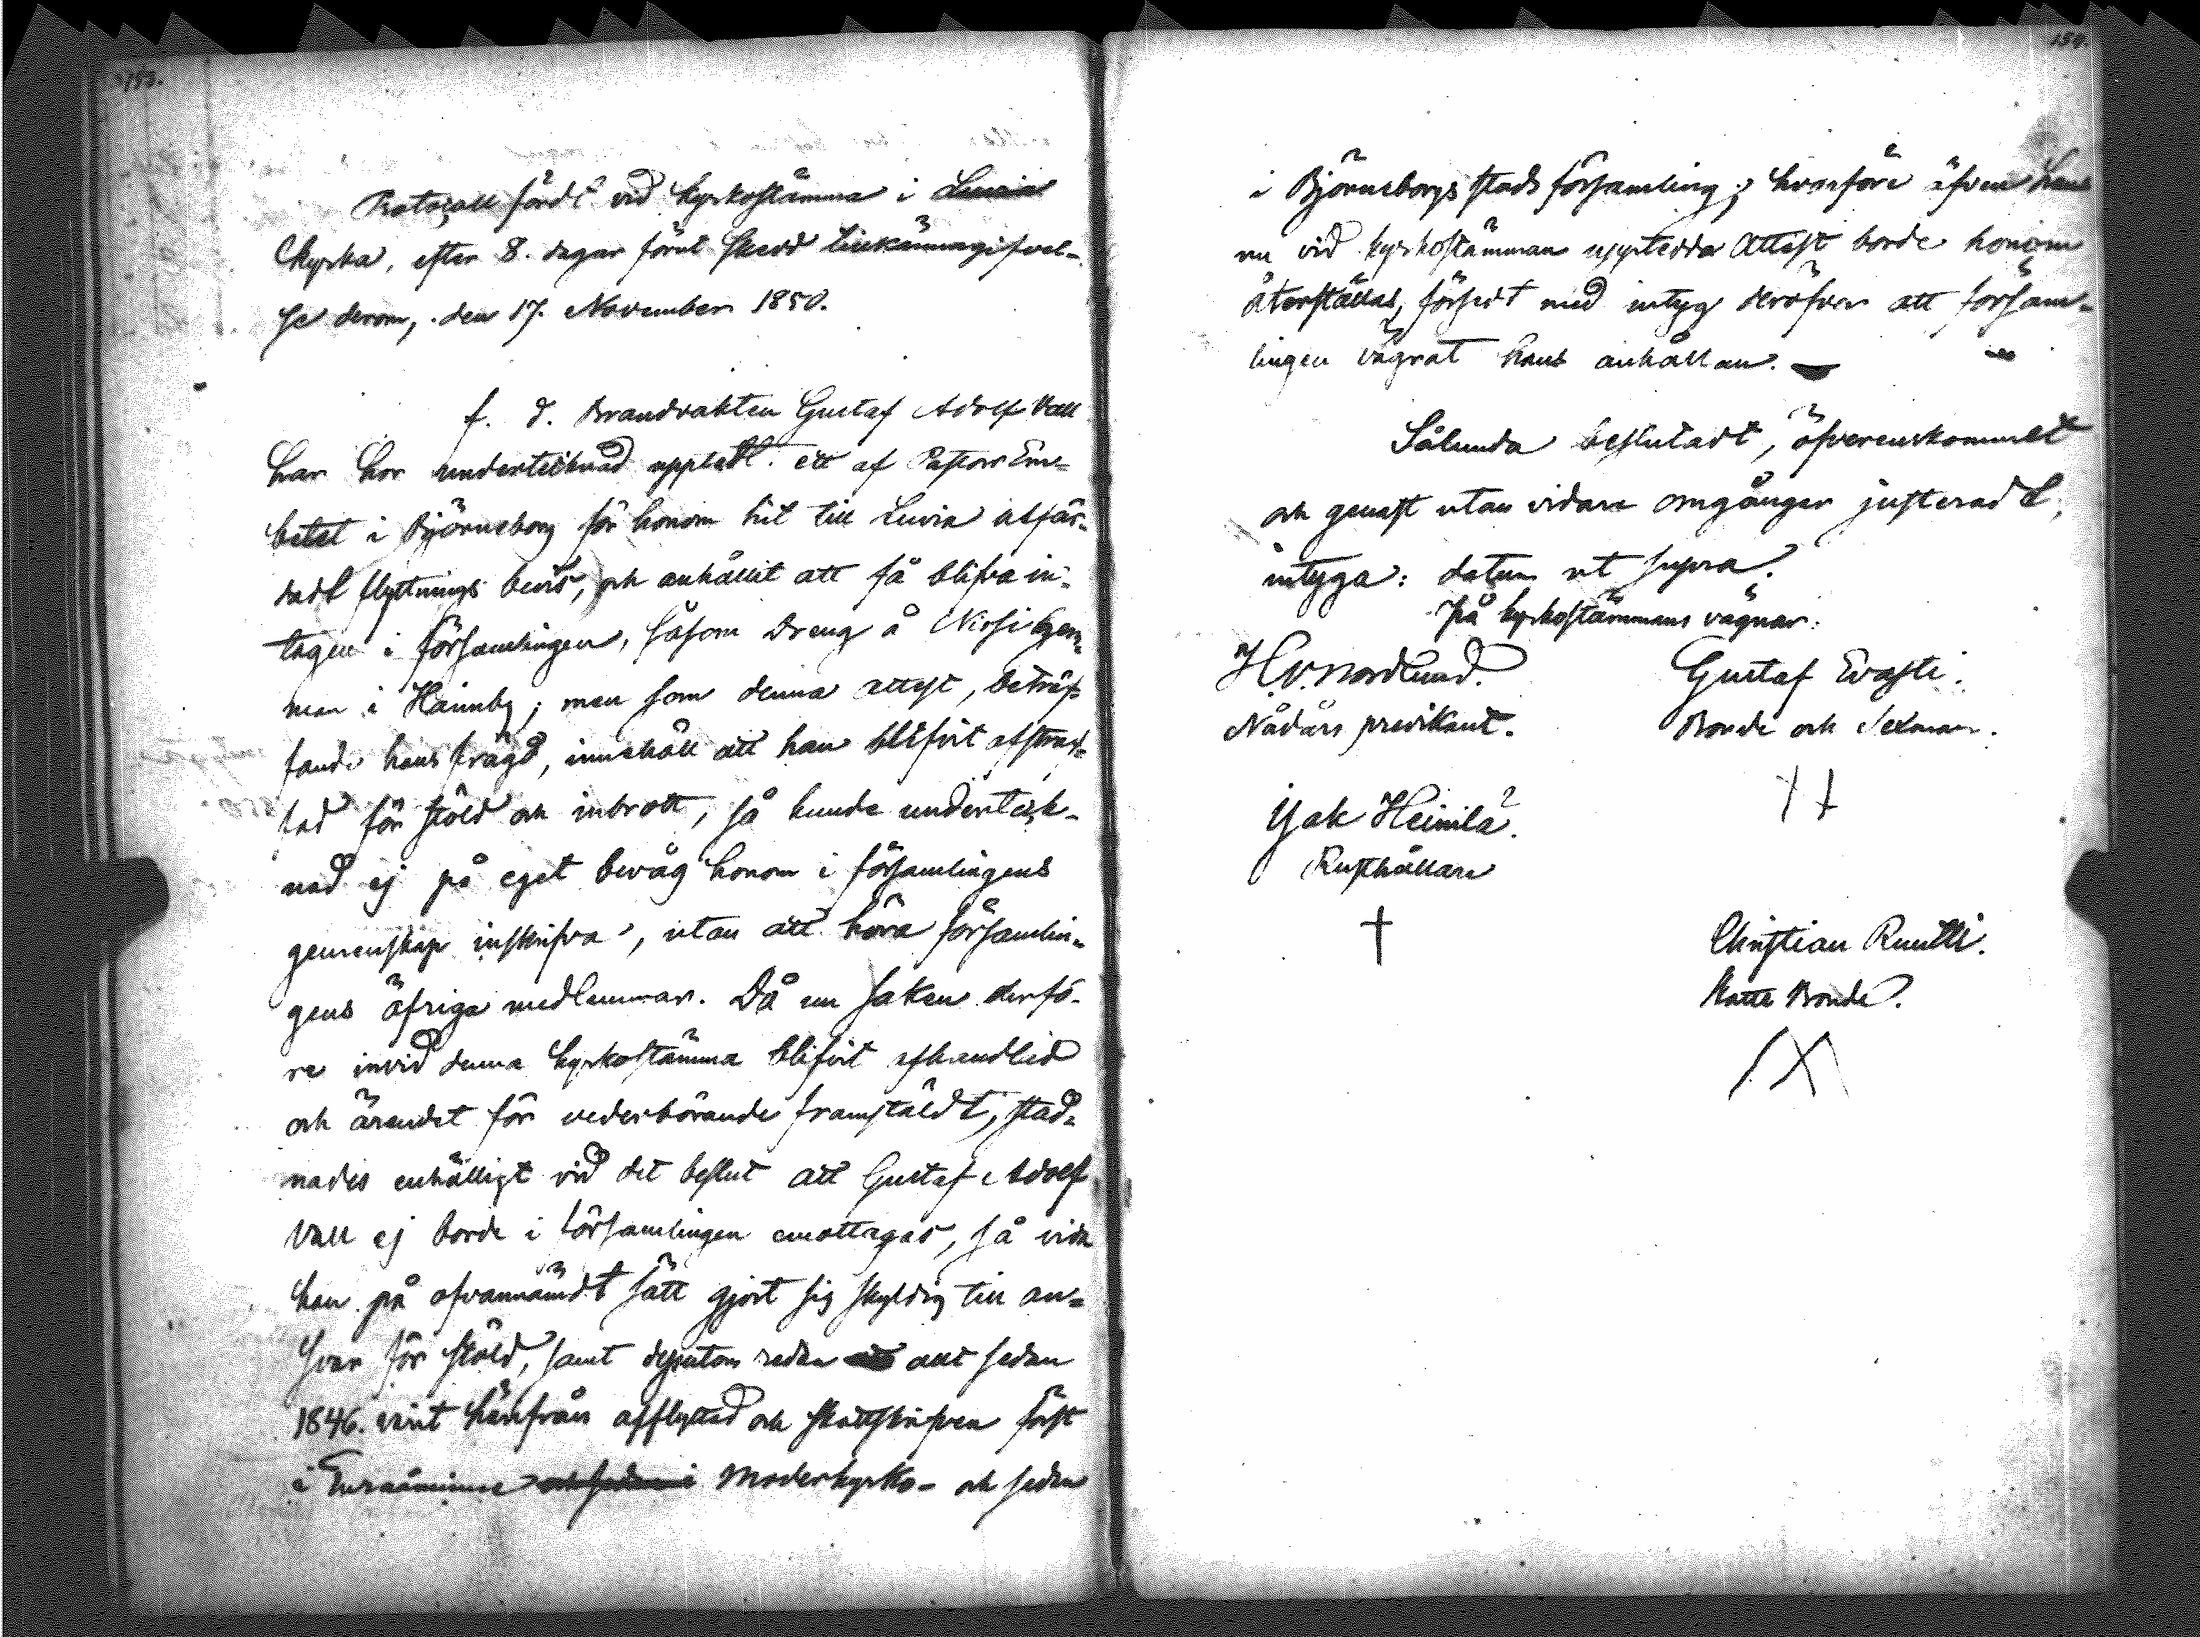 153.
Protocoll fördt vid kyrkostämma i Luvia
kyrka, efter 8. dagar förut skedd tillkännagifvel-
se derom, den 17. November 1850.
f. d. Brandvakten Gustaf Adolf Vall
har hos undertecknad uppledt ett af Pastors Em-
betet i Björneborg för honom hit till Luvia utfär-
dadt flyttnings bevis, och anhållit att få blifva in-
tagen i församlingen, såsom Dreng å Niesi hem-
man i Hanniby; men som denna attest, beträf-
fande hans frägd, innehåll att han blifvit afstraf-
fad för stöld och inbrott, så kunde underteck-
nad ej på eget bevåg honom i församlingens
gemenskap inskrifva, utan att höra församlin-
gens öfriga medlemmar. Då nu saken derfö-
re invid denna kyrkostämma blifvit afhandlad
och ärendet för vederbörande framstäldt, stad-
nades enhälligt vid det beslut att Gustaf Adolf
Vall ej borde i församlingen emottagas, så vida
han på ofvannämdt sätt gjort sig skyldig till an-
svar för stöld, samt dessutom redan allt sedan
1846. varit härifrån afflyttad och skattskrifven först
i Euraåminne och sedan i Moderkyrko- och sedan
154.
i Björneborgs stads församling; hvarföre äfven hans
nu vid kyrkostämman uppledda Attest borde honom
återställas, försedt med intyg deröfver att försam-
lingen vägrat hans anhållan.
Sålunda beslutadt, öfverenskommet
och genast utan vidare omgångar justeradt,
intyga: datum ut supra.
På kyrkostämmans vägnar:
H. V. Nordlund.
Nådårs predikant.
Gustaf Evasti.
Bonde och Sexman.
Isak Heinilä.
Rusthållare
Christian Ruutti.
Skatte Bonde.